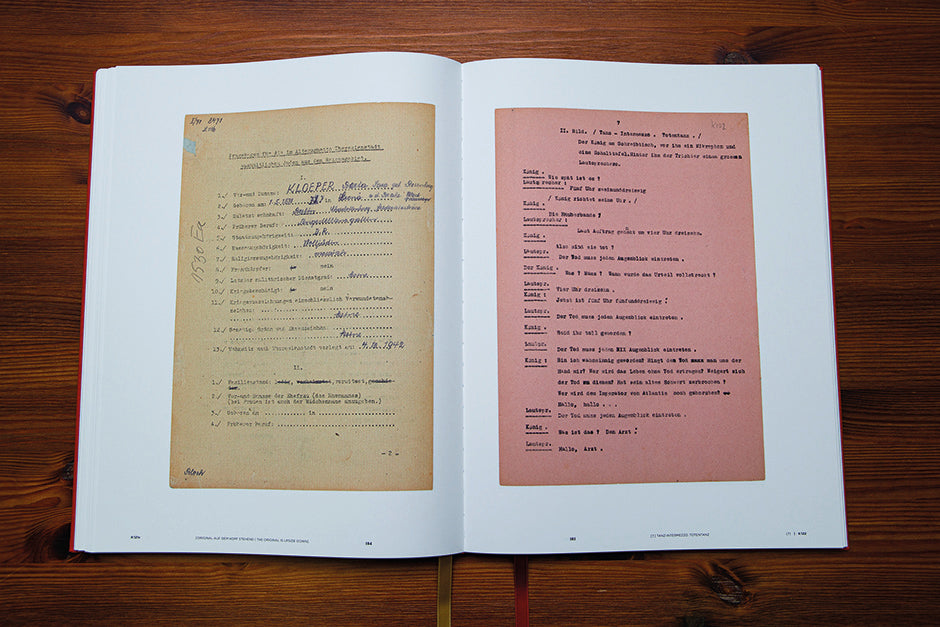 2/71 8471
Fragebogen für die im Altersghetto Theresienstadt
verbliebenen Juden aus dem Reichsgebiet.
I.
1./ Vor-und Zuname: KLOEPER
2./ Geboren am: in
3./ Zuletzt wohnhaft: Berlin
4./ Früherer Beruf:
5./ Staatsangehörigkeit: D.R.
6./ Rassenzugehörigkeit: Volljüdin
7./ Religionszugehörigkeit: mosaisch
8./ Frontkämpfer: nein
9./ Letzter militärischer Dienstgrad: keine
10./ Kriegsbeschädigt: nein
11./ Kriegsauszeichnungen einschliesslich Verwundetenab-
zeichen:
keine
12./ Sonstige Orden und Ehrenzeichen:
keine
13./ Wohnsitz nach Theresienstadt verlegt am: 1942
II.
1./ Familienstand: ledig, verheiratet, verwitwet, geschie-
den.
2./ Vor-und Zuname der Ehefrau (des Ehemannes)
(bei Frauen ist auch der Mädchenname anzugeben.)
3./ Geboren am in
4./ Früherer Beruf:
- 2 -
1530 Ea
7
II. Bild. / Tanz - Intermezzo . Totentanz . /
Der König am Schreibtisch, vor ihm ein Mikrophon und
eine Schalttafel.Hinter ihm der Trichter eines grossen
Lautsprechers.
König .
Wie spät ist es ?
Lautsprecher :
Fünf Uhr zweiunddreissig
/ König richtet seine Uhr . /
König .
Die Räuberbande ?
Lautsprecher :
Laut Auftrag gehenkt um vier Uhr dreizehn.
König .
Also sind sie tot ?
Lautspr.
Der Tod muss jeden Augenblick eintreten .
Der König .
Was ? Muss ? Wann wurde das Urteil vollstreckt ?
Lautspr.
Vier Uhr dreizehn .
König :
Jetzt ist fünf Uhr fünfunddreissig !
Lautspr.
Der Tod muss jeden Augenblick eintreten .
König .
Seid ihr toll geworden ?
Lautspr.
Der Tod muss jeden Augenblick eintreten .
König :
Bin ich wahnsinnig geworden? Ringt den Tod man mir aus der
Hand mir? Wer wird das Leben ohne Tod ertragen? Weigert sich
der Tod zu dienen? Hat sein altes Schwert zerbrochen ?
Wer wird dem Imperator von Atlantis noch gehorchen?
Hallo, hallo . . .
Lautspr.
Der Tod muss jeden Augenblick eintreten .
König .
Was ist das ? Den Arzt !
Lautspr.
Hallo, Arzt .
[ORIGINAL AUF DEM KOPF STEHEND | THE ORIGINAL IS UPSIDE DOWN]
[7] TANZ-INTERMEZZO. TOTENTANZ